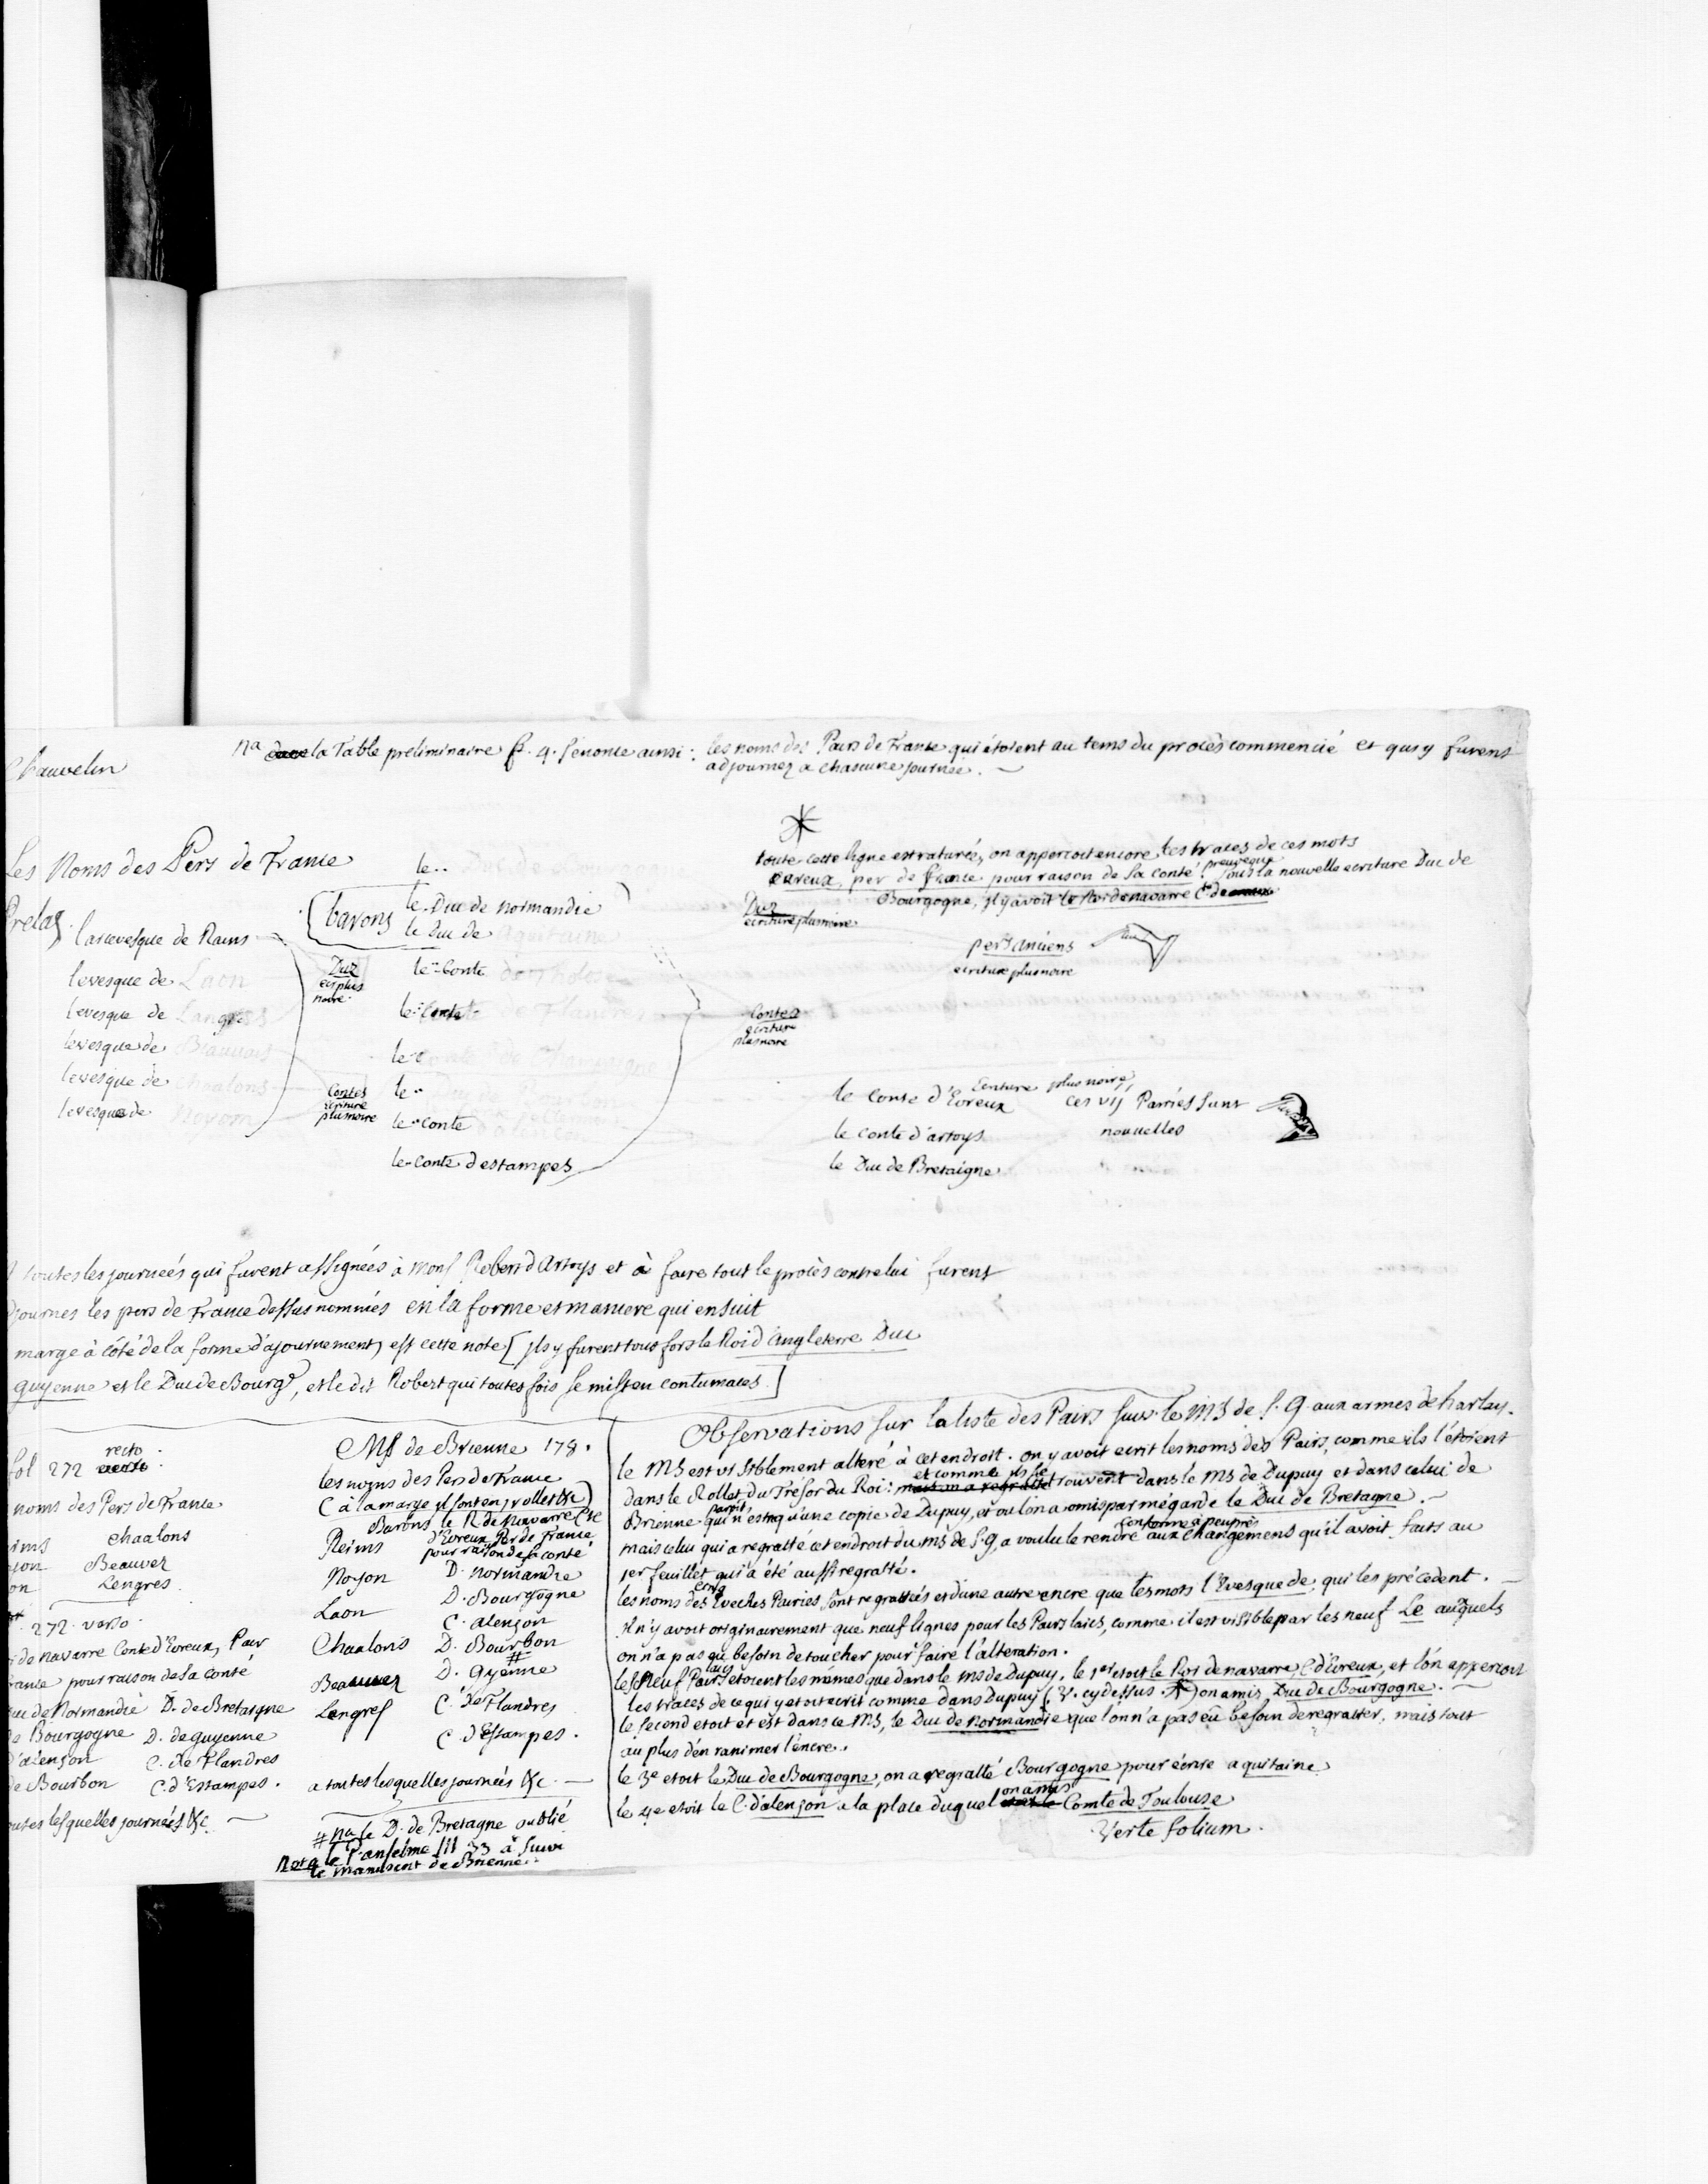 Chauvelin
Na la Table preliminaire f. 4. s'enonce ainsi : les noms des Pairs de France qui étoient au tems du procès commencié et qui y furent
adjournez a chascune journée.
Les Noms des Pers de France
Prelaz
larcevesque de Rains
levesque de Laon
levesque de Langres
levesque de Beauvais
levesque de Chaalons
levesque de Noyom
barons
Dux
ecr plus
noire
Contes
ecriture
plus noire
le..
le Duc de Normandie
le Duc de Aquitaine
le Conte de Tholose
le Conte de Flandres
le
le
le conte
le conte destampes
*
toute cette ligne est raturée, on apperçoit encore les traces de ces mots
evreux, per de france pour raison de sa conté sous la nouvelle ecriture Duc de
Bourgogne, jl y avoit le Roi de navarre Cte
Dux
ecriture plus noire
pers anciens
ecriture plus noire
Contes
ecriture
plus noire
Ecriture plus noire
le Conte d'Evreux ces vij Parries sunt
le conte d'artoys nouuelles
le Duc de Bretaigne
toutes les journeés qui furent assignées à Mons Robert d'Artoys et à faire tout le procès contre lui furent
journes les pers de France dessus nommés en la forme et maniere qui ensuit
marge à côté de la forme d'ajournement, est cette note [ jls y furent tous fors le Roi d'Angleterre Duc
guyenne et le Duc de Bourge, et le dit Robert qui toutes fois se mist en contumaces ]
fol 272 recto
noms des Pers de France
Chaalons
Beauvez
Lengres
272 verso
de Navarre Conte d'Evreux, Pair
france pour raison de sa conté
Duc de Normandie D. de Bretaigne
de Bourgogne D. de guyenne
d'alençon C. de Flandres
de Bourbon C. d'Estampes.
toutes lesquelles journeés &c.
MS de Brienne 178.
les noms des Pers de France
( à la marge jl sont en j rollet &c )
Barons le R. de Navarre Cte
d'Evreux Per de France
pour raison de sa conté
Reims
Noyon D. Normandie
Laon D. Bourgogne
C. alençon
Chaalons D. Bourbon
Beauvez D. Gyenne #
Lengres C. de Flandres
C. d'Estampes.
a toutes lesquelles journées &c.
# na le D. de Bretagne oublié
Nota le P. anselme III 33 a suivi
le manuscrit de Brienne.
Observations sur la liste des Pairs sur le MS de S. G. aux armes de harlay.
le MS est visiblement alteré à cet endroit. on y avoit ecrit les noms des Pairs, comme ils l'étoient
dans le Rollet du Trésor du Roi: et comme ils se trouvent dans le MS de Dupuy et dans celui de
Brienne qui n'est qu'une copie de Dupuy, et ou l'on a omis par mégarde le Duc de Bretagne.
mais celui qui a regratté cet endroit du ms de S. G. a voulu le rendre conforme à peuprès aux changemens qu'il avoit faits au
1er feuillet qui a été aussi regratté.
les noms des cinq Eveches Pairies sont regrattés et d'une autre encre que les mots l'Evesque de, qui les précedent.
jl n'y avoit originairement que neuf lignes pour les Pairs laics, comme il est visible par les neuf Le auxquels
on n'a pas eu besoin de toucher pour faire l'alteration.
les Neuf Pairs laics etoient les mêmes que dans le ms de Dupuy, le 1er etoit le Roi de navarre, C. d'Evreux, et l'on apperçoit
les traces de ce qui y etoit ecrit comme dans Dupuy (V. cy dessus *) on a mis Duc de Bourgogne.
le second etoit et est dans ce MS, le Duc de Normandie que l'on n'a pas eu besoin de regratter, mais tout
au plus d'en ranimer l'encre.
le 3e etoit le Duc de Bourgogne, on a regratté Bourgogne pour écrire aquitaine
le 4e etoit le C. d'alençon a la place duquel on a mis Comte de Toulouse
Verte folium.